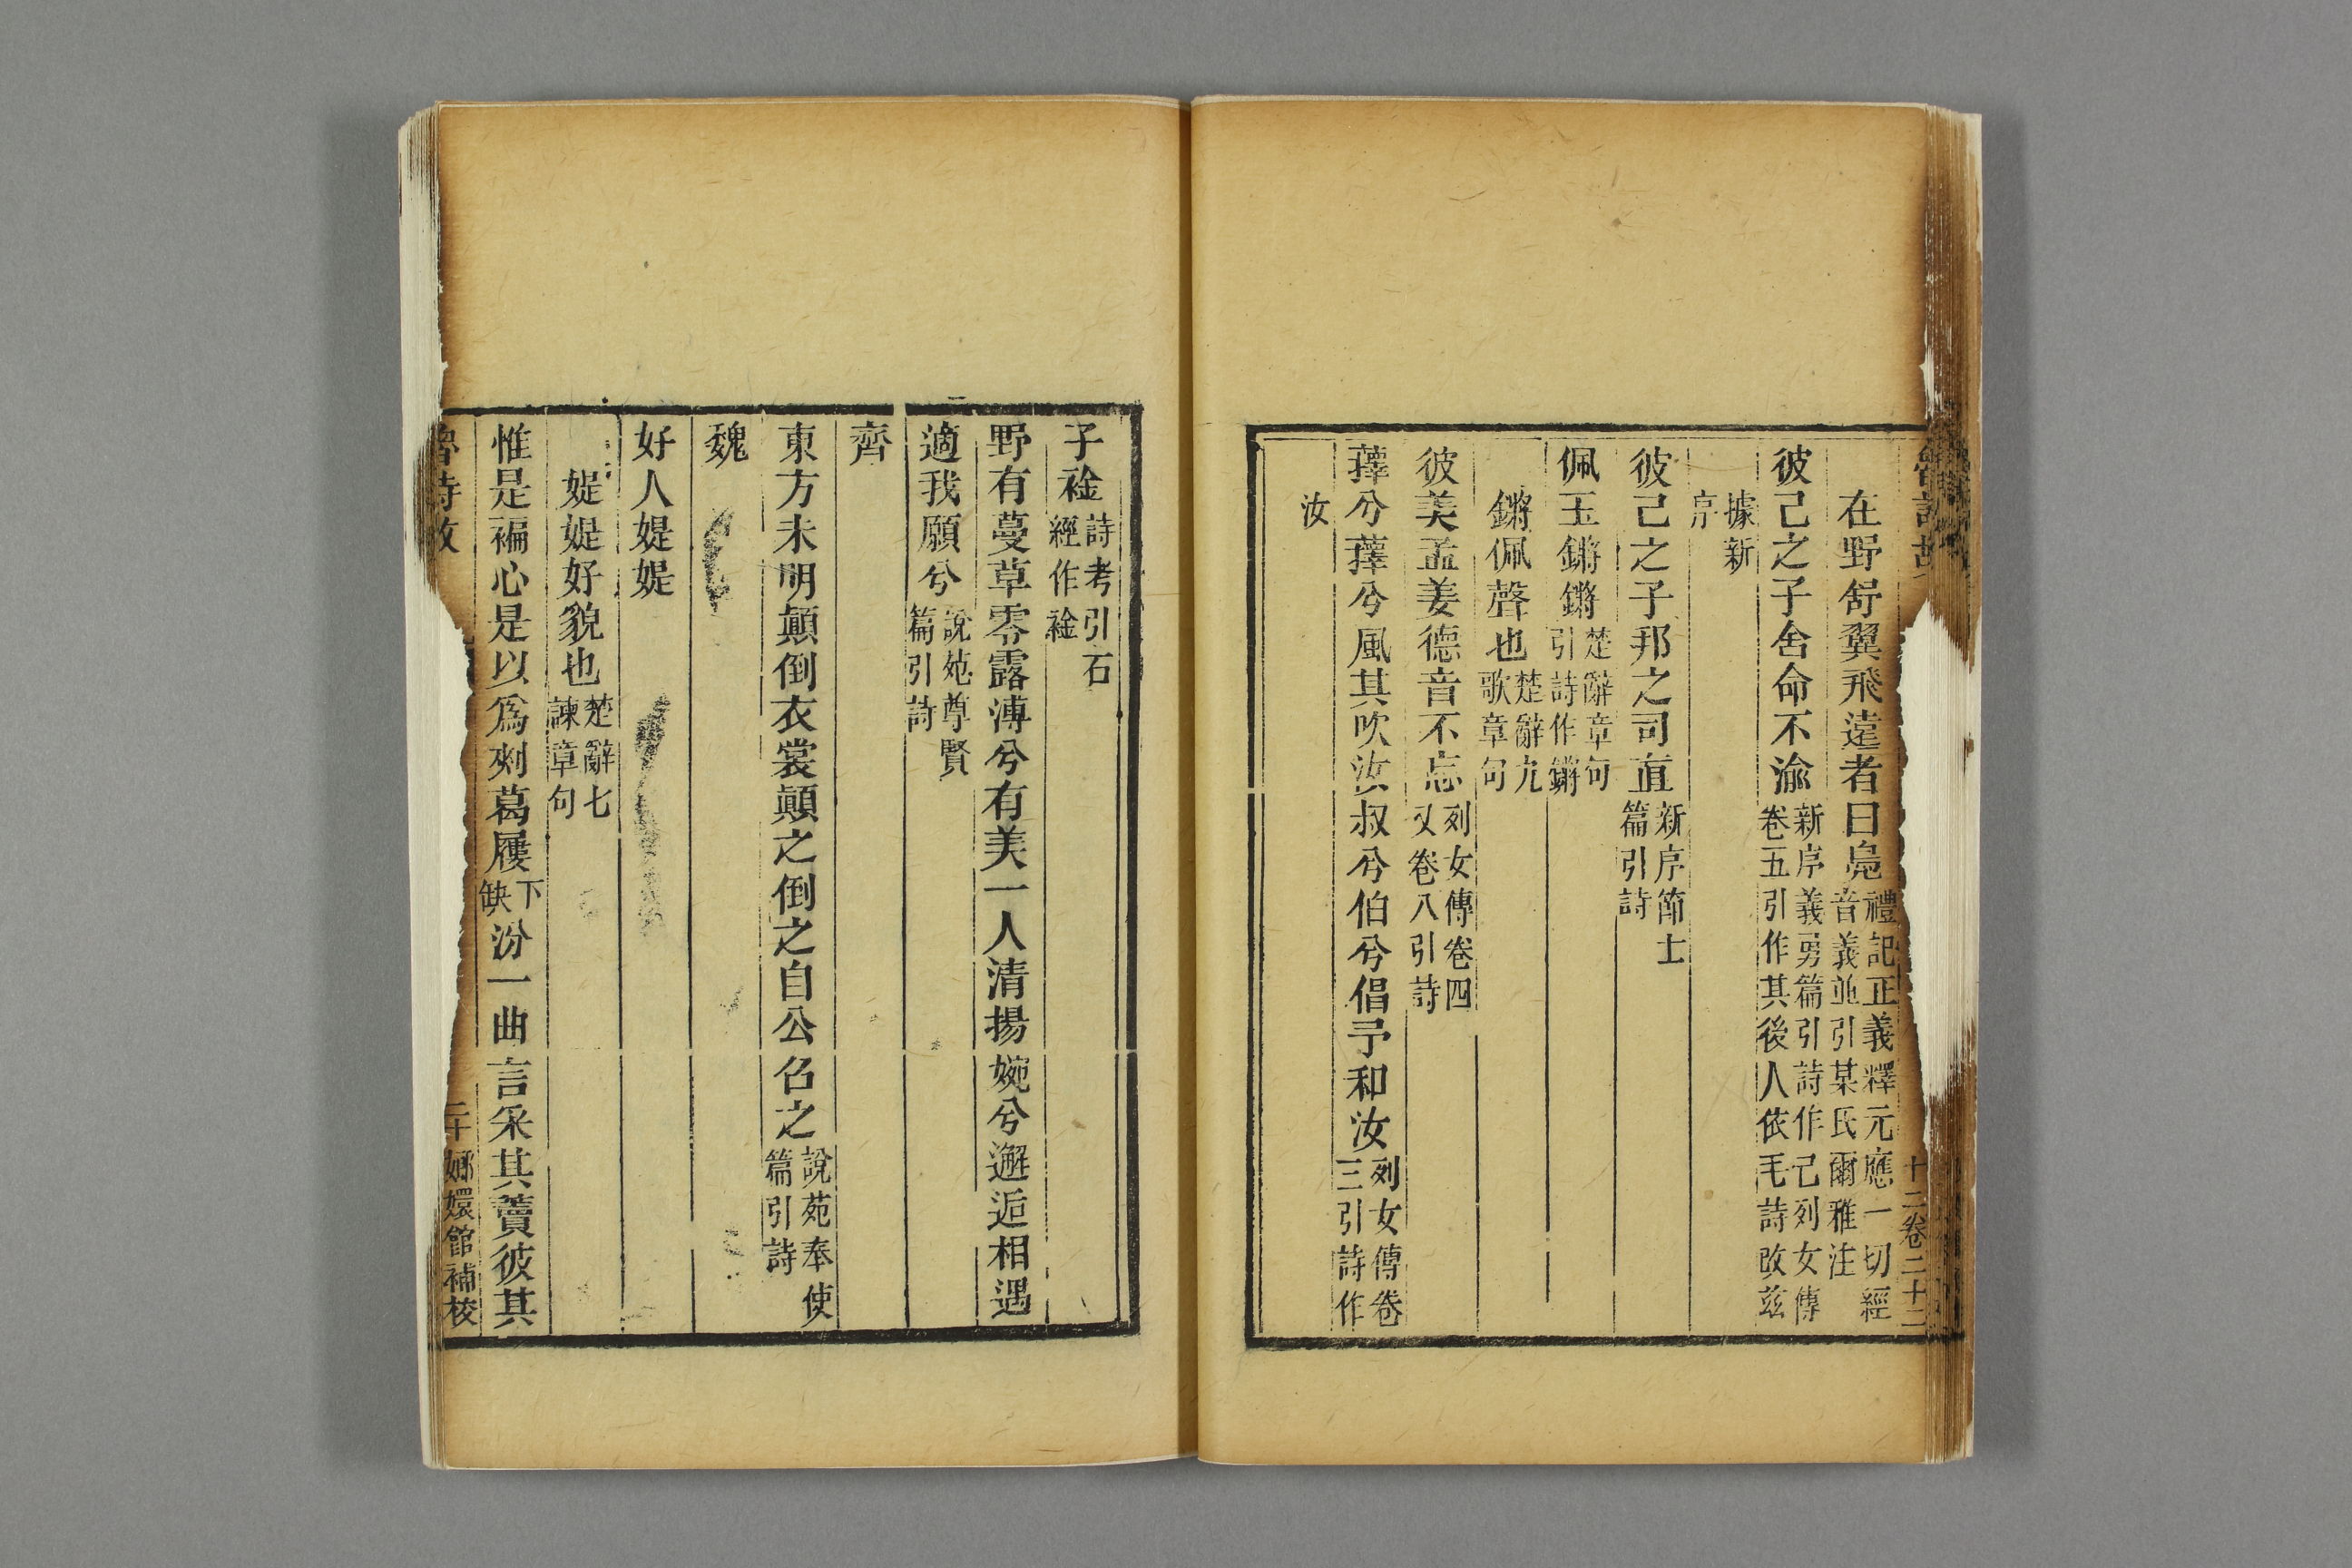 在野舒翼飛遠者曰鳧禮記正義釋元應一切經音義並引某氏爾雅注
彼己之子舍命不渝新序義勇篇引詩作己列女傳卷五引作其後人依毛詩改茲
據新序
彼己之子邦之司直新序節士篇引詩
佩玉鏘鏘楚辭章句引詩作鏘
鏘佩聲也楚辭九歌章句
彼美孟姜德音不忘列女傳卷四又卷八引詩
蘀兮蘀兮風其吹汝叔兮伯兮倡予和汝列女傳卷三引詩作
汝
十二卷二十二
子衿詩考引石經作衿
野有蔓草零露漙兮有美一人清揚婉兮邂逅相遇
適我願兮說苑尊賢篇引詩
齊
東方未明顛倒衣裳顛之倒之自公召之說苑奉使篇引詩
魏
好人媞媞
媞媞好貌也楚辭七諫章句
惟是褊心是以爲刺葛屨下缺汾一曲言采其藚彼其
魯詩故
二十
嫏嬛館補校